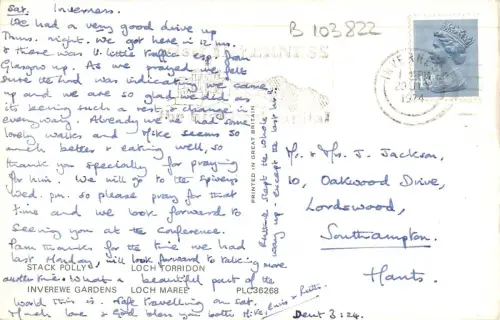 Sat. Inverness.
We had a very good drive up
Thurs. night. We got here in 12 hrs.
& there was v. little traffic esp. from
Glasgow up. As we prayed we felt
sure the Lord was indicating we came
up and we are so glad we did as
its been such a rest & change in
every way. Already we had some
lovely walks and Mike seems so
much better & eating well, so
thank you specially for praying
for him. We will go to the Spiveys
Wed. pm. so please pray for that
time and we look forward to
seeing you at the Conference.
Pam thanks for the time we had
last Monday, will look forward to talking more
another time. What a beautiful part of the
world this is. Safe travelling on Sat.
Much love & God bless you both Mike,
way up. except the last hr.
B 103822
INVERNESS
INVERNESS
1974
PRINTED IN GREAT BRITAIN
Mr. & Mrs. J. Jackson,
10, Oakwood Drive,
Lordswood,
Southampton.
Hants.
STACK POLLY
LOCH TORRIDON
INVEREWE GARDENS
LOCH MAREE
PLC36268
Deut 3:24.